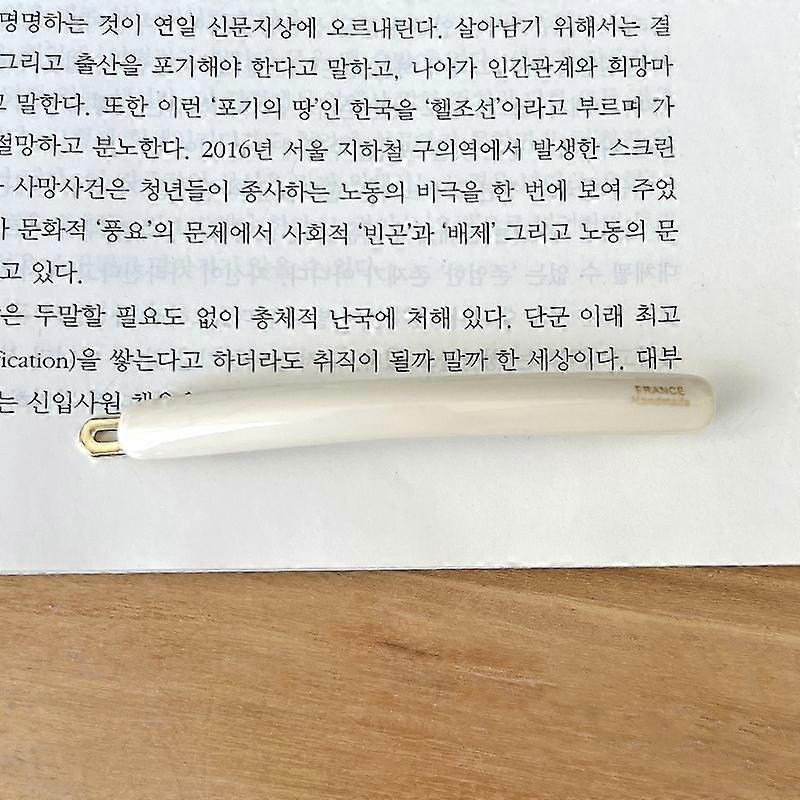 명명하는 것이 연일 신문지상에 오르내린다. 살아남기 위해서는 결
그리고 출산을 포기해야 한다고 말하고, 나아가 인간관계와 희망마
고 말한다. 또한 이런 ‘포기의 땅’인 한국을 ‘헬조선’이라고 부르며 가
절망하고 분노한다. 2016년 서울 지하철 구의역에서 발생한 스크린
사망사건은 청년들이 종사하는 노동의 비극을 한 번에 보여 주었
문화적 ‘풍요’의 문제에서 사회적 ‘빈곤’과 ‘배제’ 그리고 노동의 문
고 있다.
은 두말할 필요도 없이 총체적 난국에 처해 있다. 단군 이래 최고
fication)을 쌓는다고 하더라도 취직이 될까 말까 한 세상이다. 대부
는 신입사원
FRANCE
Handmade